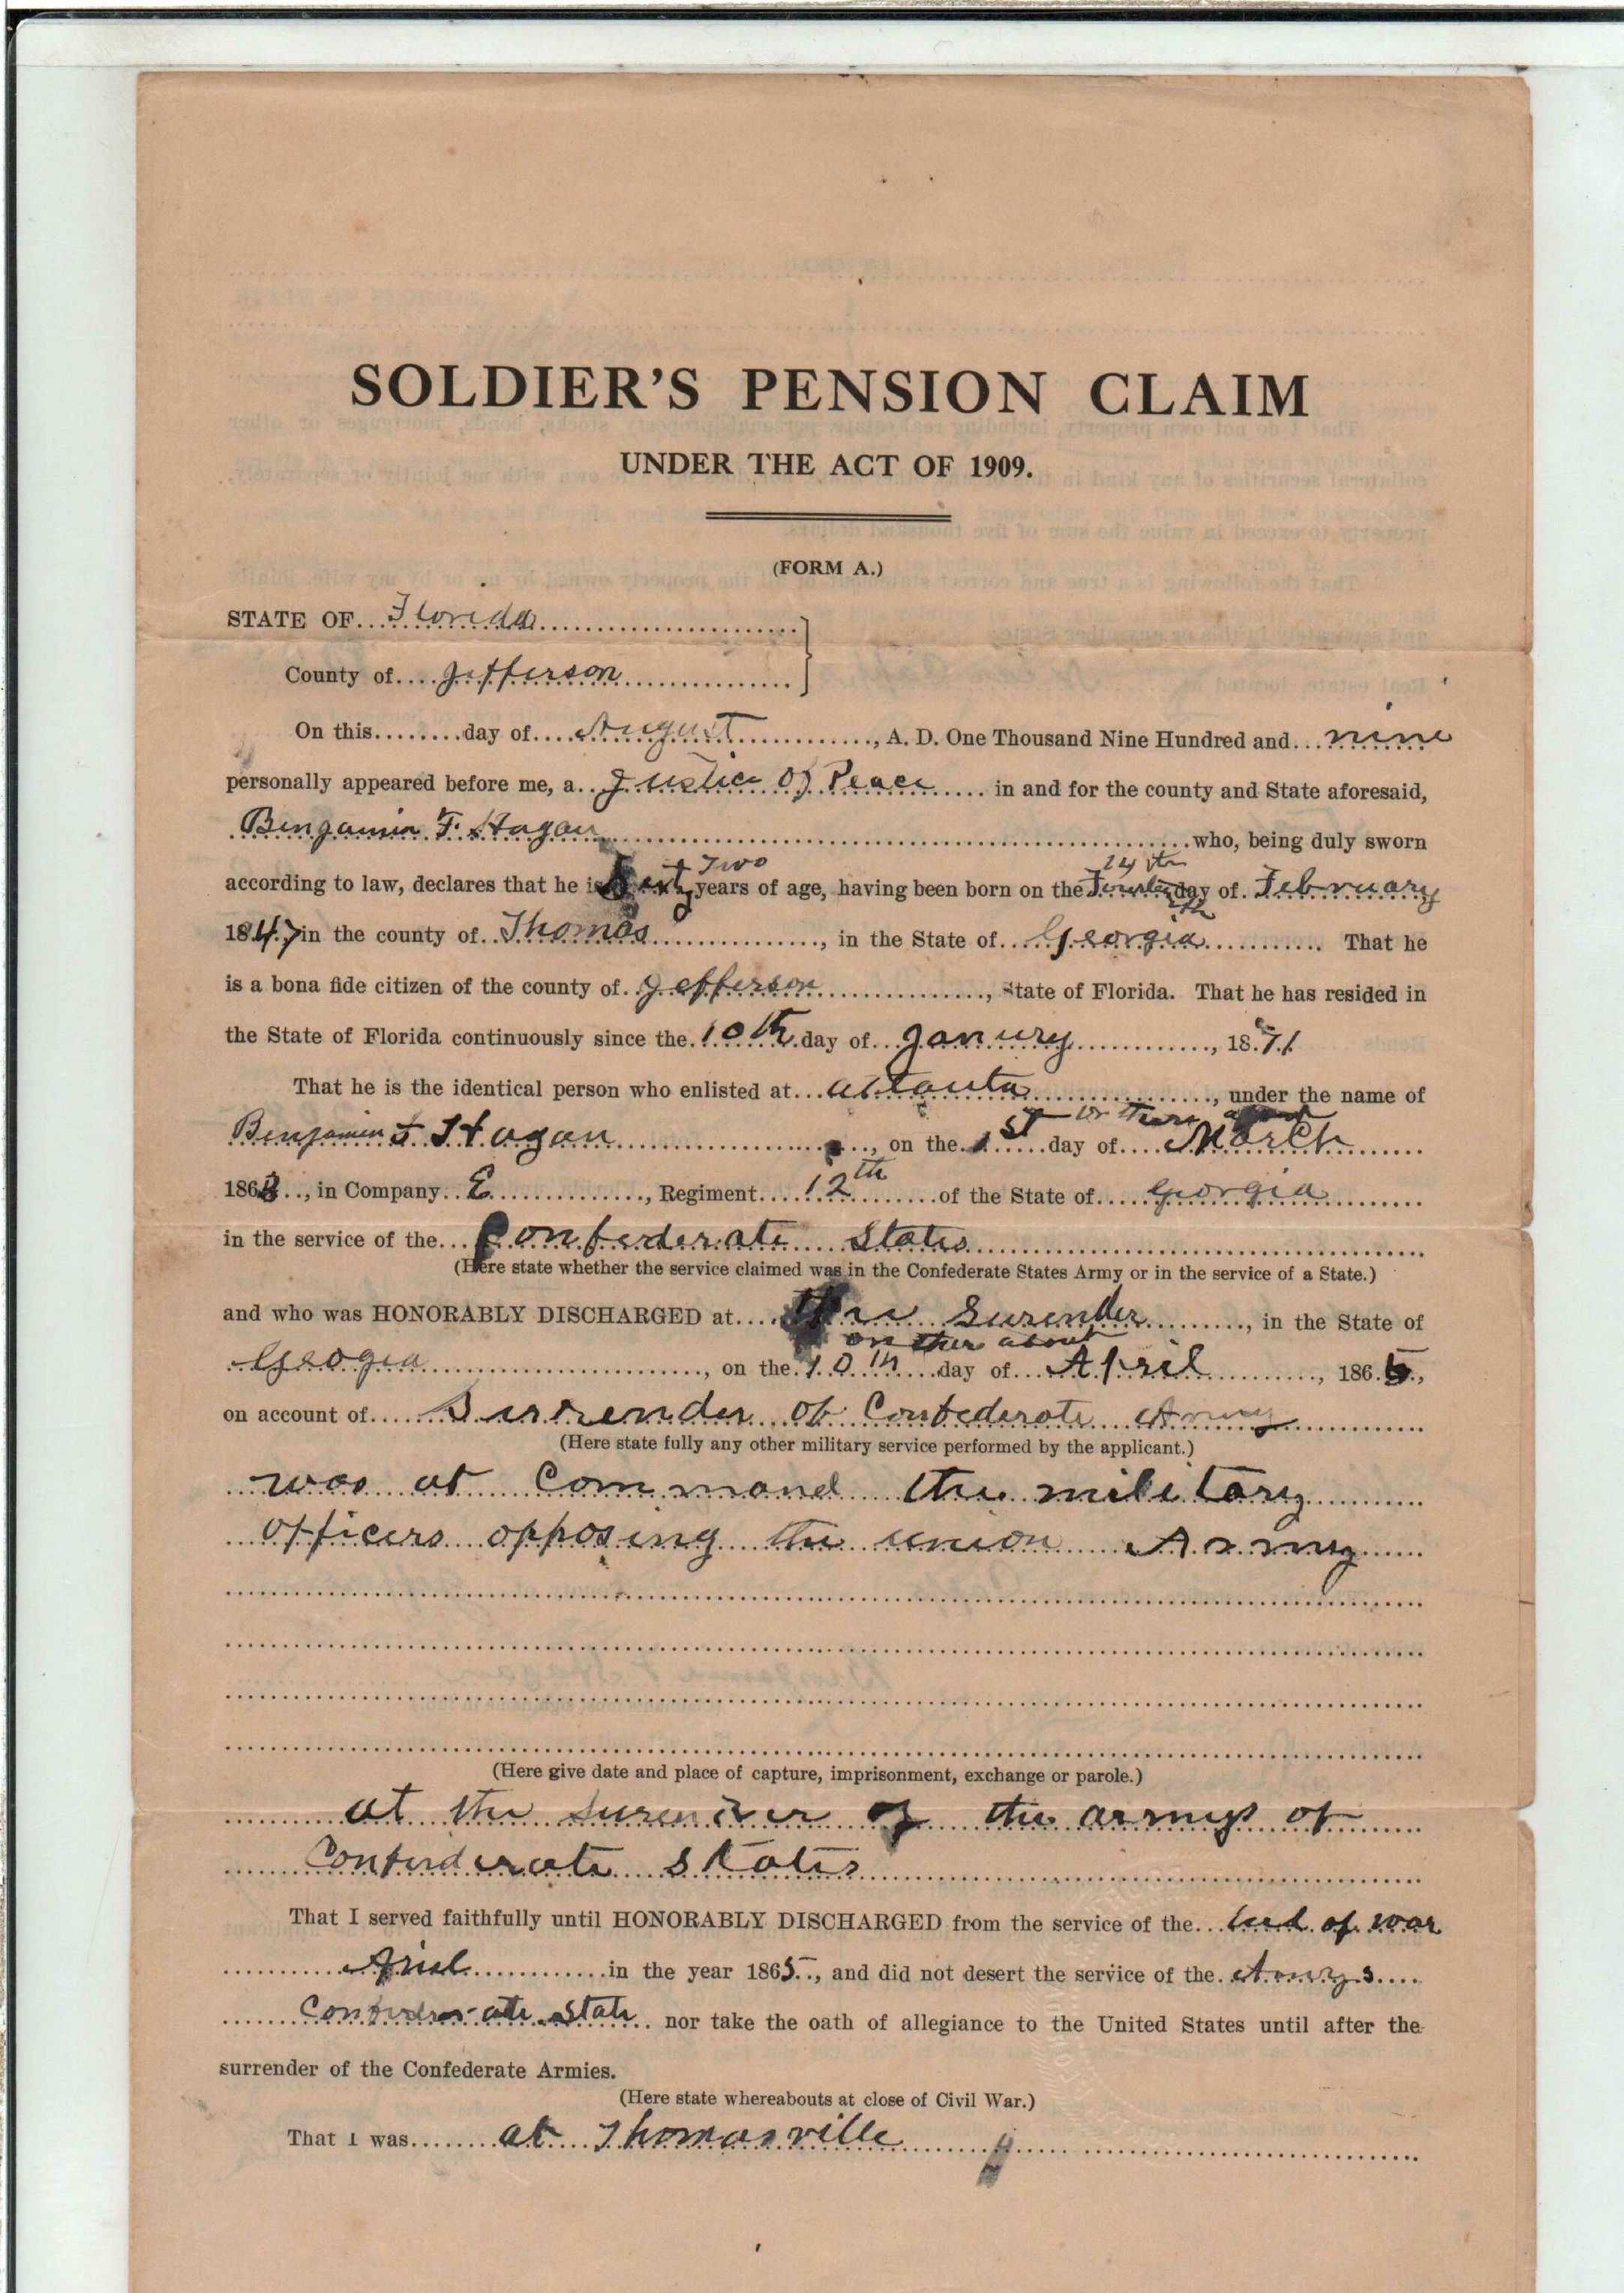 SOLDIER'S PENSION CLAIM
UNDER THE ACT OF 1909.
(FORM A.)
STATE OF Florida
County of Jefferson
On this........day of August, A. D. One Thousand Nine Hundred and nine
personally appeared before me, a Justice of Peace in and for the county and State aforesaid,
Benjamin F. Hagan who, being duly sworn
Two 14th
according to law, declares that he is Sixty years of age, having been born on the day of February
1847 in the county of Thomas, in the State of Georgia. That he
is a bona fide citizen of the county of Jefferson, State of Florida. That he has resided in
the State of Florida continuously since the 10th day of Janury, 1871
That he is the identical person who enlisted at Attanta, under the name of
or there about
Benjamin F Hagan, on the 1st day of March
1863, in Company E, Regiment 12th of the State of Georgia
in the service of the Confederate States
(Here state whether the service claimed was in the Confederate States Army or in the service of a State.)
and who was HONORABLY DISCHARGED at the Surender, in the State of
on ther about
Geogia, on the 10th day of April, 1865,
on account of Surrender of Confederate Army
(Here state fully any other military service performed by the applicant.)
was at Command the military
officers opposing the union Army
(Here give date and place of capture, imprisonment, exchange or parole.)
at the Surender of the armys of
Confederate States
That I served faithfully until HONORABLY DISCHARGED from the service of the End of war
April in the year 1865, and did not desert the service of the Armys
Confederate State nor take the oath of allegiance to the United States until after the
surrender of the Confederate Armies.
(Here state whereabouts at close of Civil War.)
That I was at Thomasville